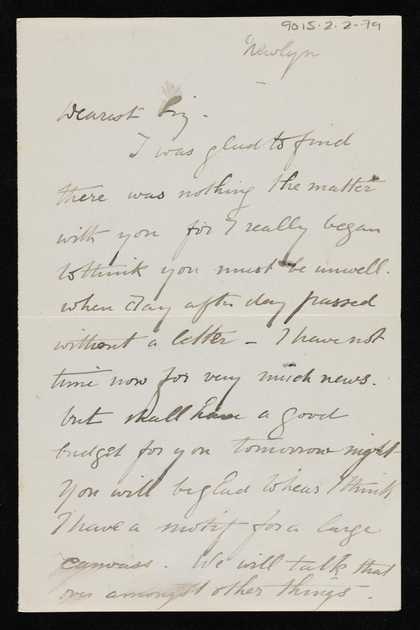 9015-2-2-79
Newlyn
Dearest Liz.
I was glad to find
there was nothing the matter
with you for I really began
to think you must be unwell.
when day after day passed
without a letter - I have not
time now for very much news.
but shall have a good
budget for you tomorrow night
You will be glad to hear I think
I have a motif for a large
canvass. We will talk that
over amongst other things -